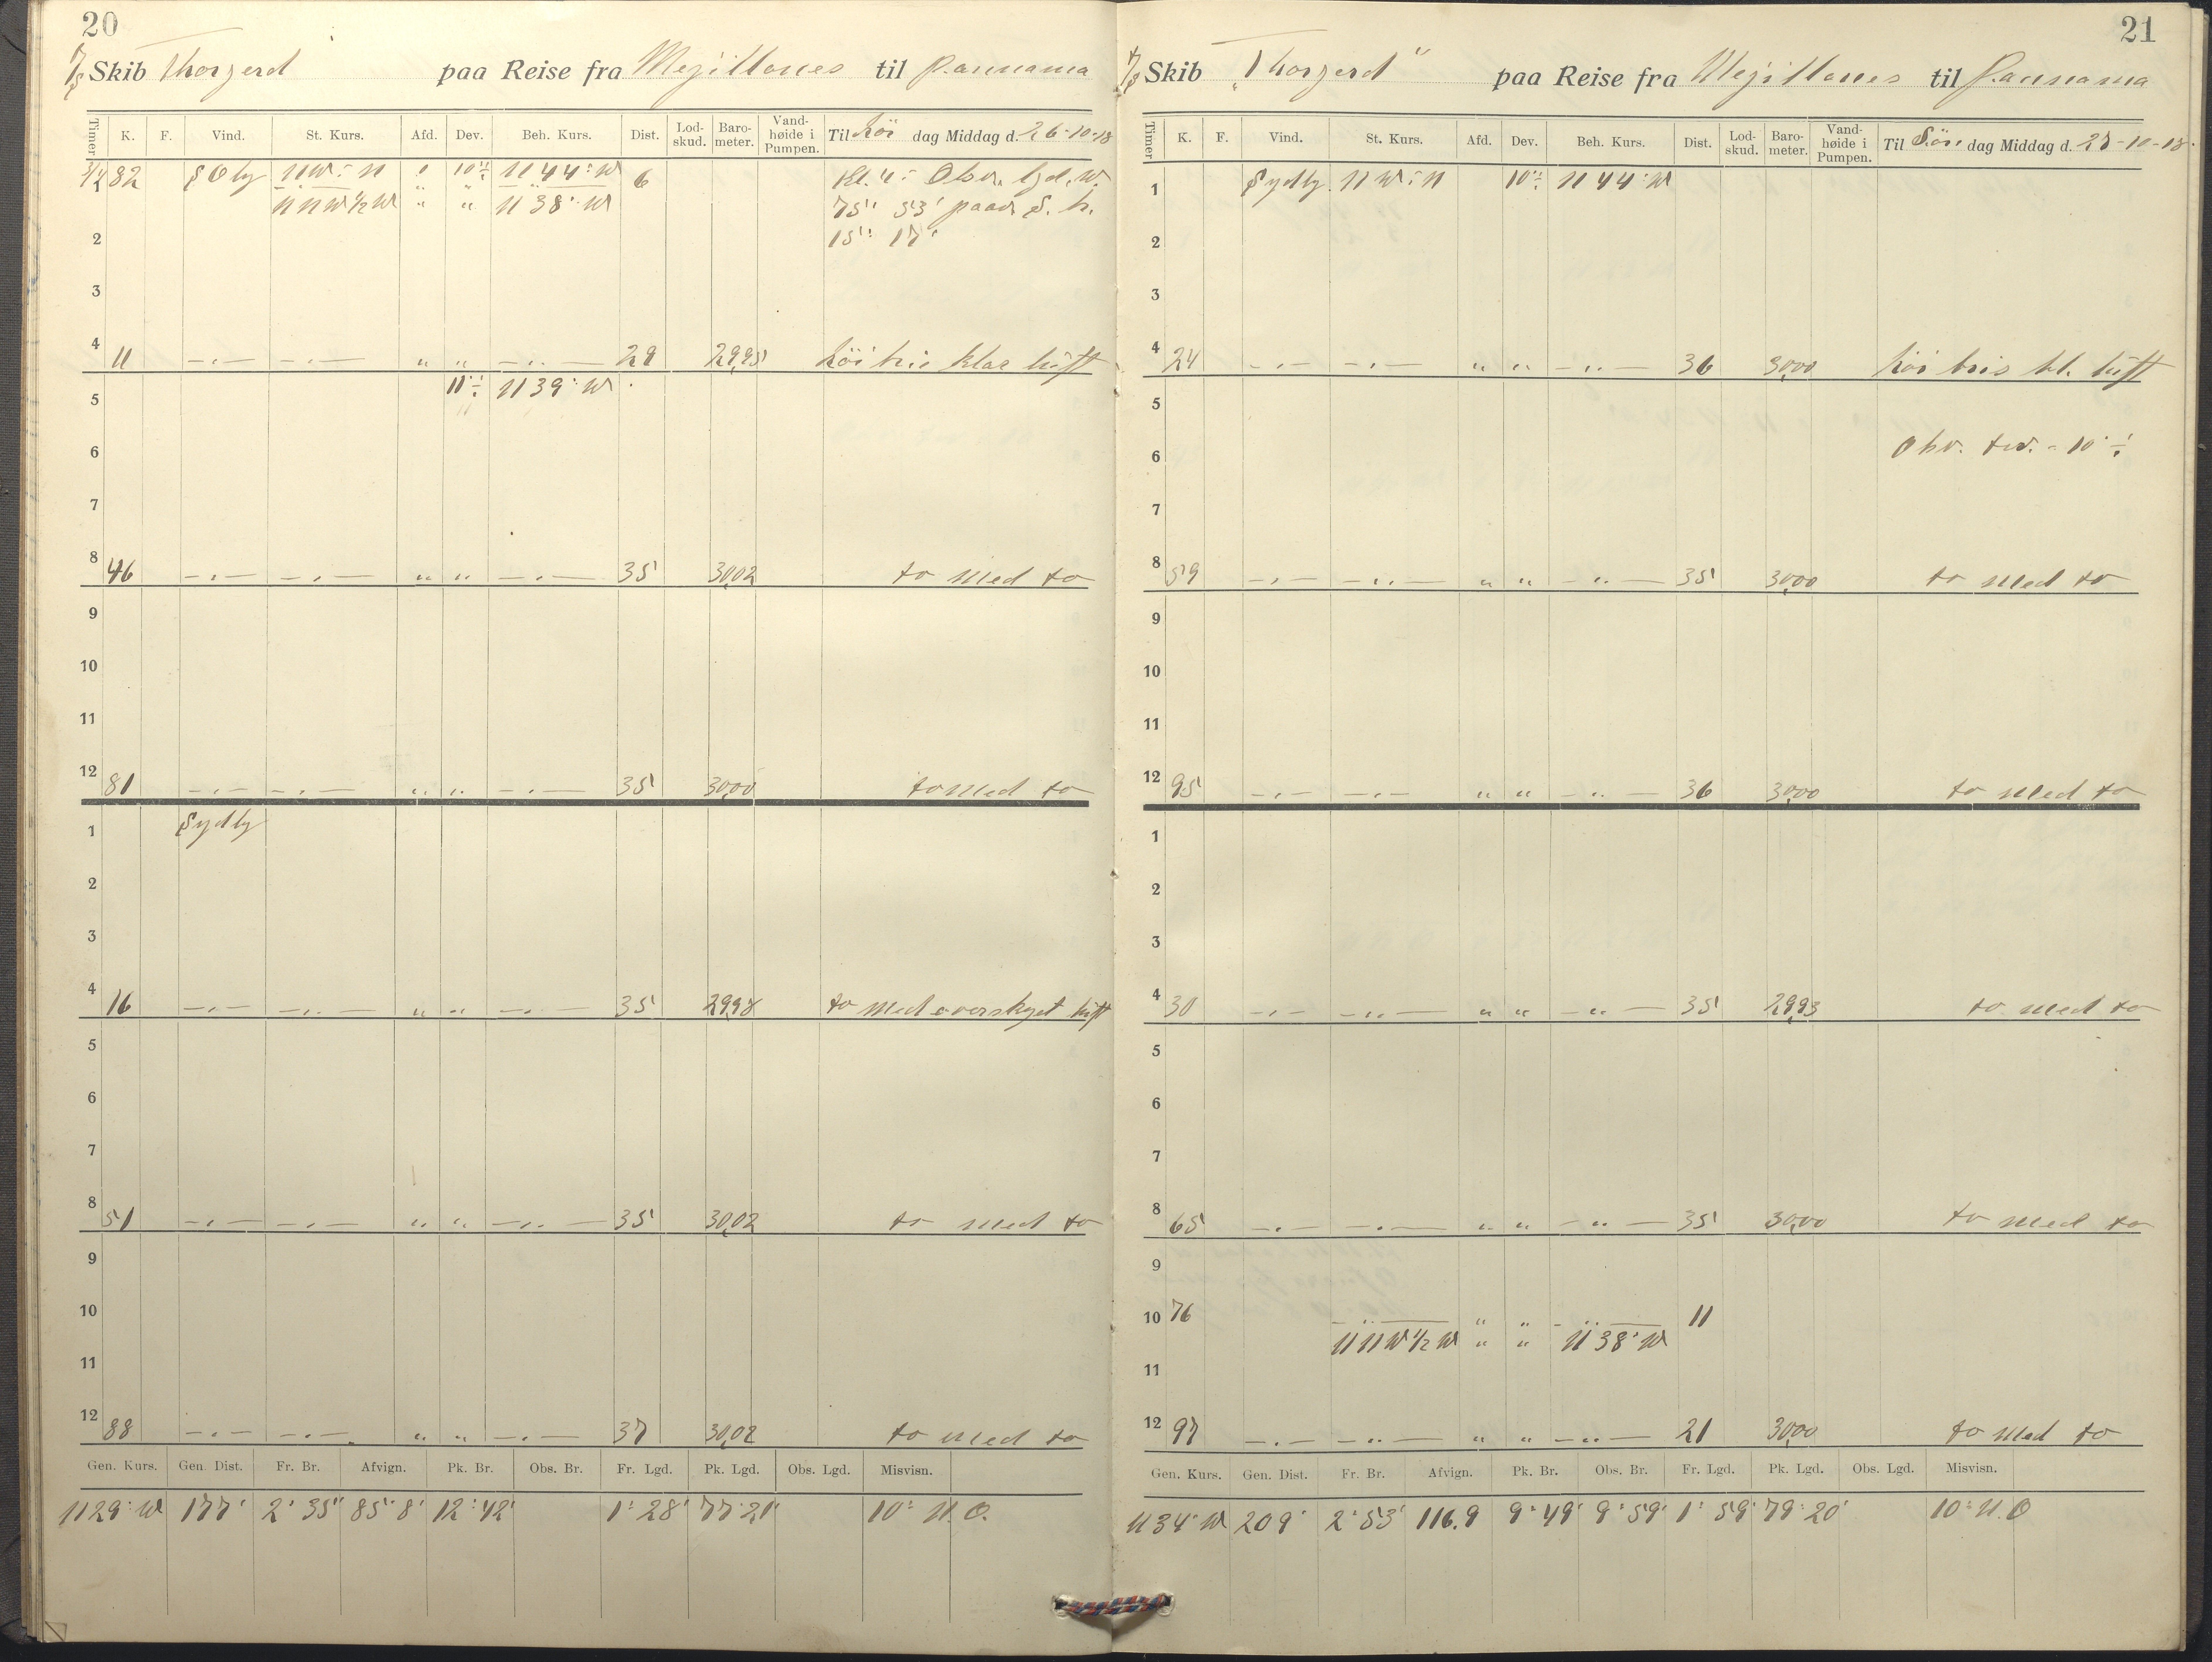 20
7/8 Skib Thorgerd paa Reise fra Mejillones til Pannama
Timer K. F. Vind. St. Kurs. Afd. Dev. Beh. Kurs. Dist. Lod-skud. Baro-meter. Vand-høide i Pumpen. Til Lör dag Middag d. 26-10-18
82 SOly NW÷N 10° ÷ N44°W 6 Kl. 4 Obsv. lgd. W.
NNW½W " " N38°W 75° 53' paav. S. b.
2 15° 17'
3
4 11 -„- -„- " " -„- 29 29,95 Löi bris klar luft
11° ÷ N39°W
5
6
7
8 46 -„- -„- " " -„- 35 30,02 to med to
9
10
11
12 81 -„- -„- " " -„- 35 30,00 to med to
Sydly
1
2
3
4 16 -„- -„- " " -„- 35 29,98 to med overskyet luft
5
6
7
8 51 -„- -„- " " -„- 35 30,02 to med to
9
10
11
12 88 -„- -„- " " -„- 37 30,02 to med to
Gen. Kurs. Gen. Dist. Fr. Br. Afvign. Pk. Br. Obs. Br. Fr. Lgd. Pk. Lgd. Obs. Lgd. Misvisn.
N29°W 177' 2° 35' 85'8 12° 42' 1° 28' 77° 21' 10° N.O.
21
7/8 Skib „Thorgerd" paa Reise fra Mejillones til Pannama
Timer K. F. Vind. St. Kurs. Afd. Dev. Beh. Kurs. Dist. Lod-skud. Baro-meter. Vand-høide i Pumpen. Til Sön dag Middag d. 27-10-18.
1 Sydly NW÷N 10° ÷ N44°W
2
3
4 24 -„- -„- " " -„- 36 30,00 Löi bris kl. luft
5
6 Obv. dev. = 10° ÷
7
8 59 -„- -„- " " -„- 35 30,00 to med to
9
10
11
12 95 -„- -„- " " -„- 36 30,00 to med to
1
2
3
4 30 -„- -„- " " -„- 35 29,93 to med to
5
6
7
8 65 -„- -„- " " -„- 35 30,00 to med to
9
10 76 -„- " " -„- 11
NNW½W " " N38°W
11
12 97 -„- -„- " " -„- 21 30,00 to med to
Gen. Kurs. Gen. Dist. Fr. Br. Afvign. Pk. Br. Obs. Br. Fr. Lgd. Pk. Lgd. Obs. Lgd. Misvisn.
N34°W 209' 2° 53' 116.9 9° 49' 9° 59' 1° 59' 79° 20' 10° N.O